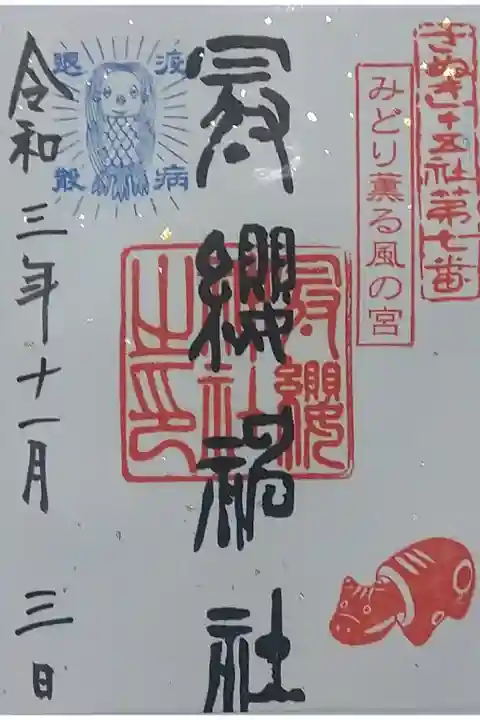 さぬき十五社第七番
みどり薫る風の宮
冠纓神社
冠纓神社之印
疫病
退散
令和三年十一月三日